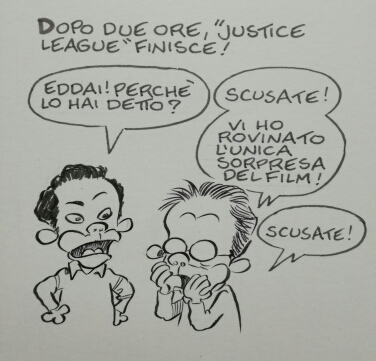 DOPO DUE ORE, "JUSTICE
LEAGUE" FINISCE!
EDDAI! PERCHE'
LO HAI DETTO?
SCUSATE!
VI HO
ROVINATO
L'UNICA
SORPRESA
DEL FILM!
SCUSATE!